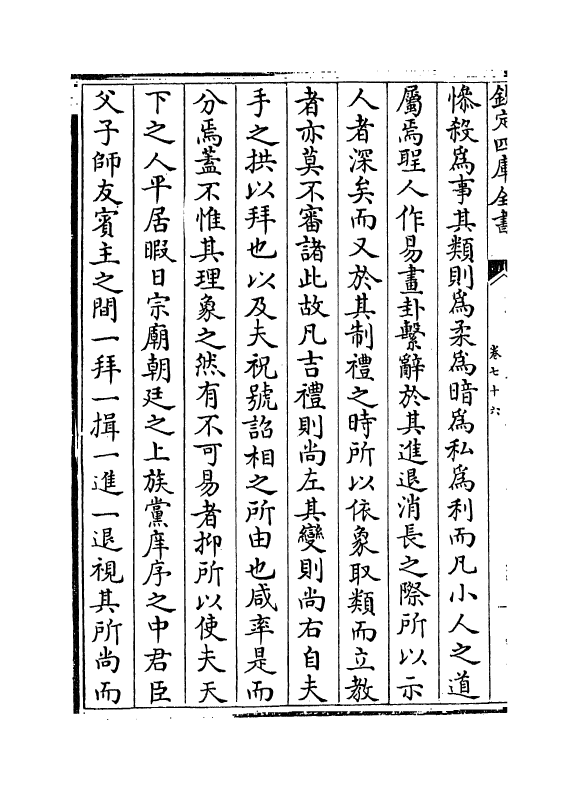 欽定四庫全書
卷七十六
慘殺為事其類則為柔為暗為私為利而凡小人之道
屬焉聖人作易畫卦繫辭於其進退消長之際所以示
人者深矣而又於其制禮之時所以依象取類而立教
者亦莫不審諸此故凡吉禮則尚左其變則尚右自夫
手之拱以拜也以及夫祝號詔相之所由也咸率是而
分焉蓋不惟其理象之然有不可易者抑所以使夫天
下之人平居暇日宗廟朝廷之上族黨庠序之中君臣
父子師友賓主之間一拜一揖一進一退視其所尚而